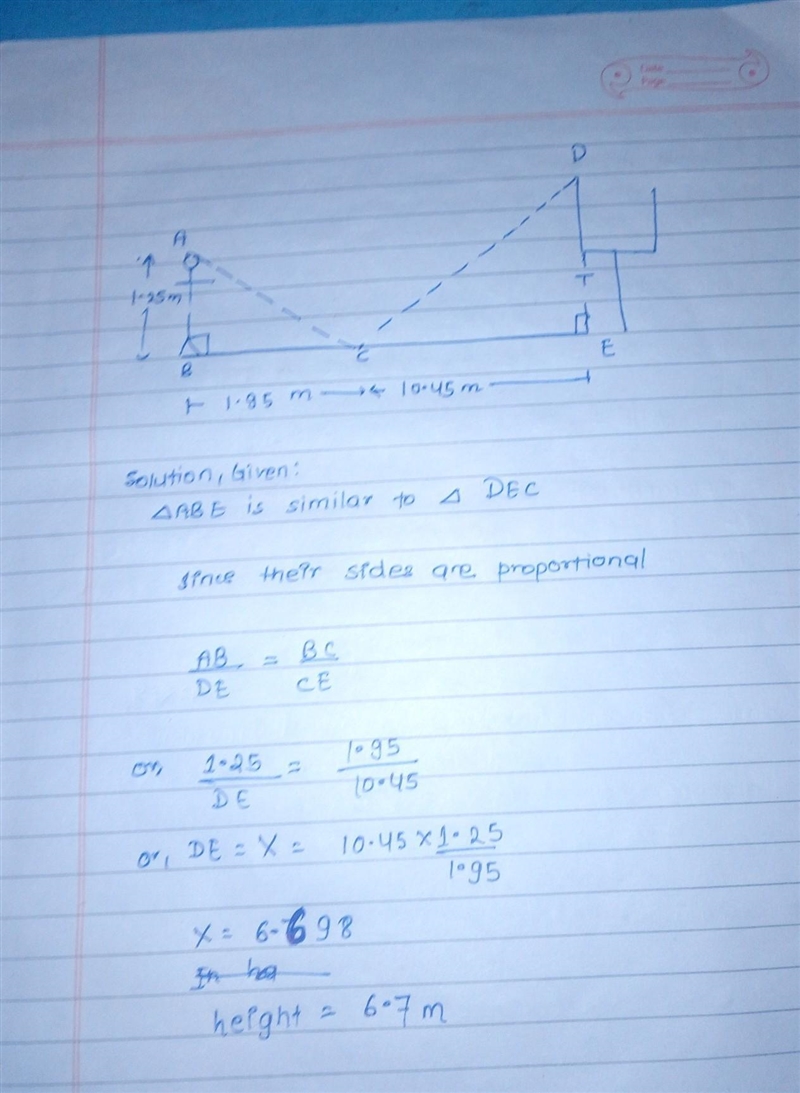 Date
Page
D
A
1.25m
T
B
C
E
1.95 m
10.45m
Solution, Given:
△ABE is similar to △ DEC
since their sides are proportional
AB/DE = BC/CE
or, 1.25/DE = 1.95/10.45
or, DE = X = 10.45 × 1.25/1.95
X = 6.698
height = 6.7 m